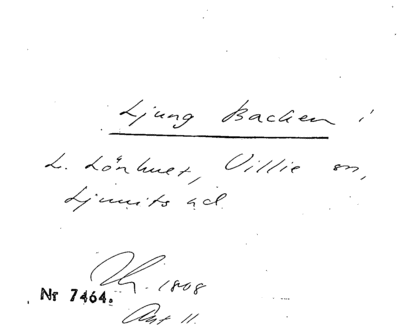 Ljung Backen i
L. Lönhult, Villie sn,
Ljunits hd
1808
Nr 7464.
11.